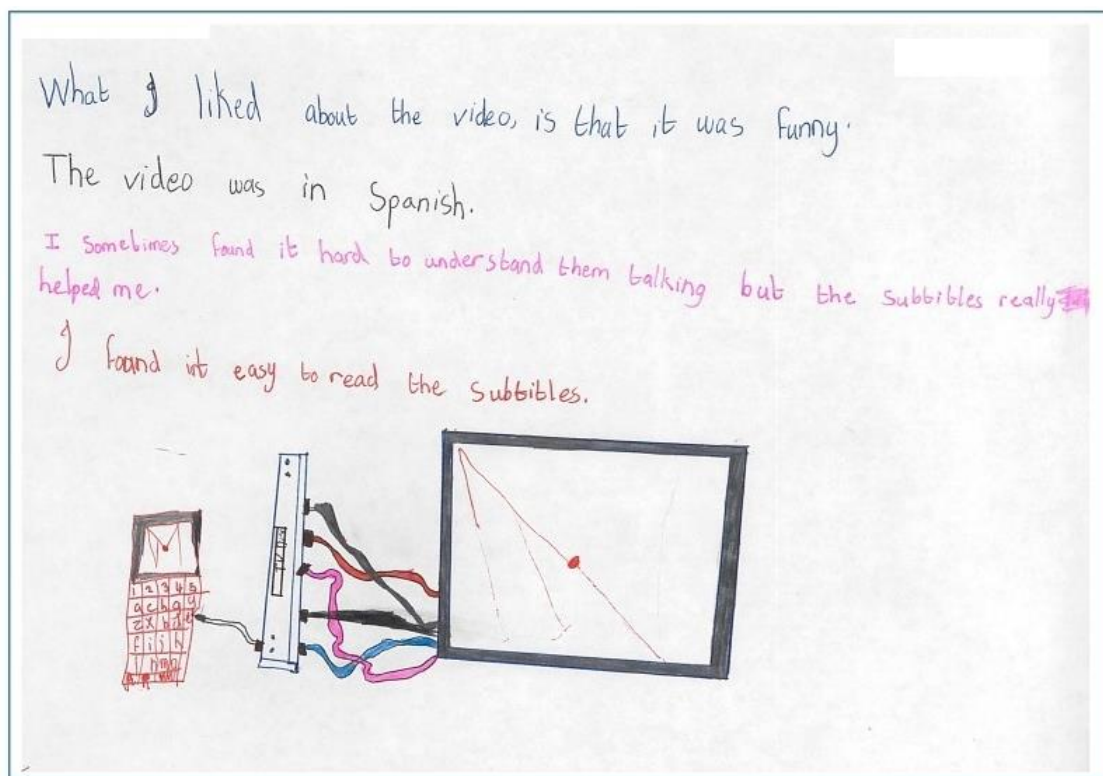 What I liked about the video, is that it was funny.
The video was in Spanish.
I Sometimes found it hard to understand them talking but the subtitles really
helped me.
I found int easy to read the subtitles.
1 2 3 4 5